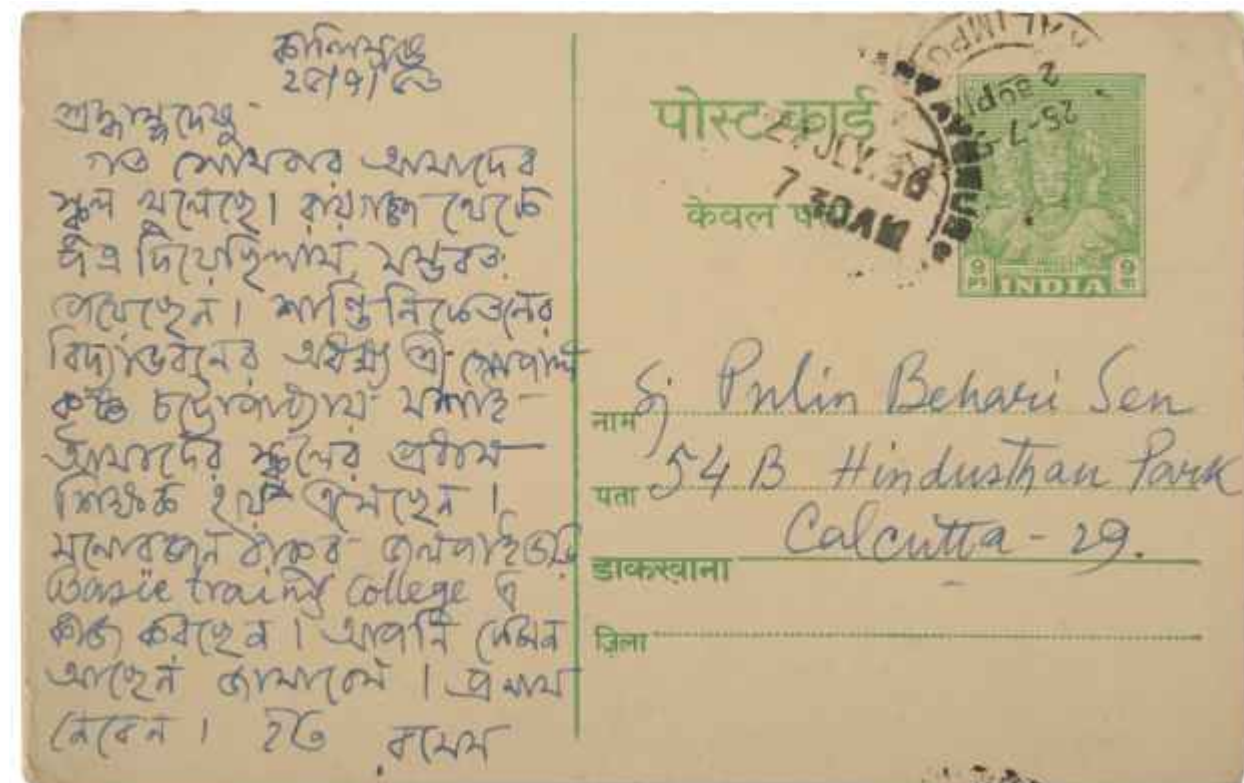 কালিম্পঙ
২৫/৭/৫৬
শ্রদ্ধাস্পদেষু-
গত সোমবার আমাদের
স্কুল খুলেছে। রায়গঞ্জ থেকে
পত্র দিয়েছিলাম, সম্ভবতঃ
পেয়েছেন। শান্তিনিকেতনের
বিদ্যাভবনের অধ্যক্ষ শ্রী গোপাল
কৃষ্ণ চট্টোপাধ্যায় মশাই-
আমাদের স্কুলের প্রধান
শিক্ষক হয়ে এসেছেন।
মনোরঞ্জন বাবু জলপাইগুড়ি
Basic training College এ
কাজ করছেন। আপনি কেমন
আছেন জানাবেন। প্রণাম
নেবেন। ইতি
রমেশ
पोस्ट कार्ड
केवल
27 JLY. 56
7 30AM
KALIMPO
25-7-5
2 30PM
9 PS INDIA 9 पा
नाम Sj Pulin Behari Sen
पता 54 B Hindusthan Park
Calcutta - 29.
डाकखाना
ज़िला